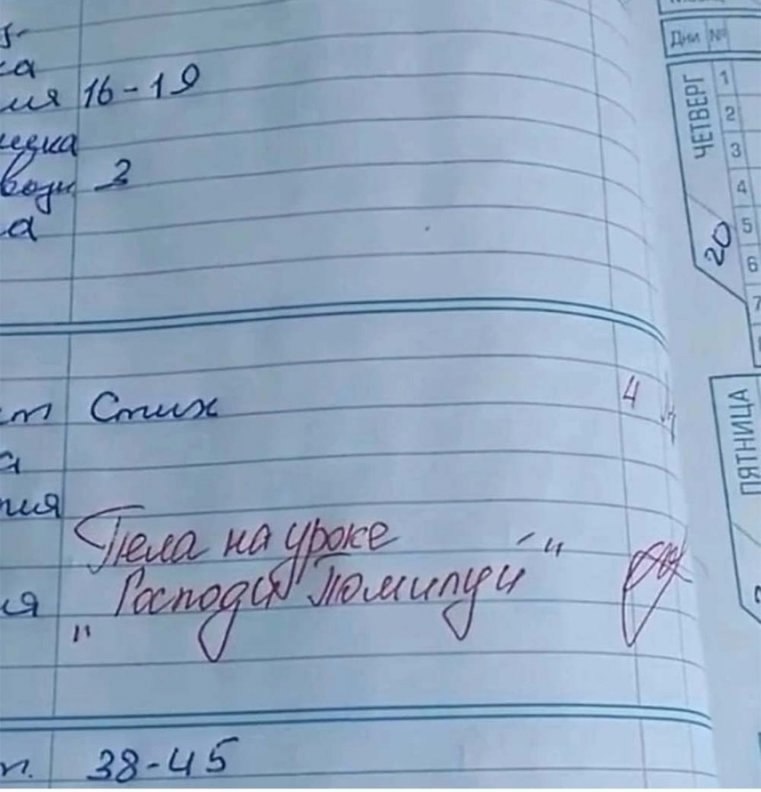 16-19
3
Стих
4
Пела на уроке
"Господи Помилуй"
38-45
Дни №
ЧЕТВЕРГ
20
1
2
3
4
5
6
7
ПЯТНИЦА